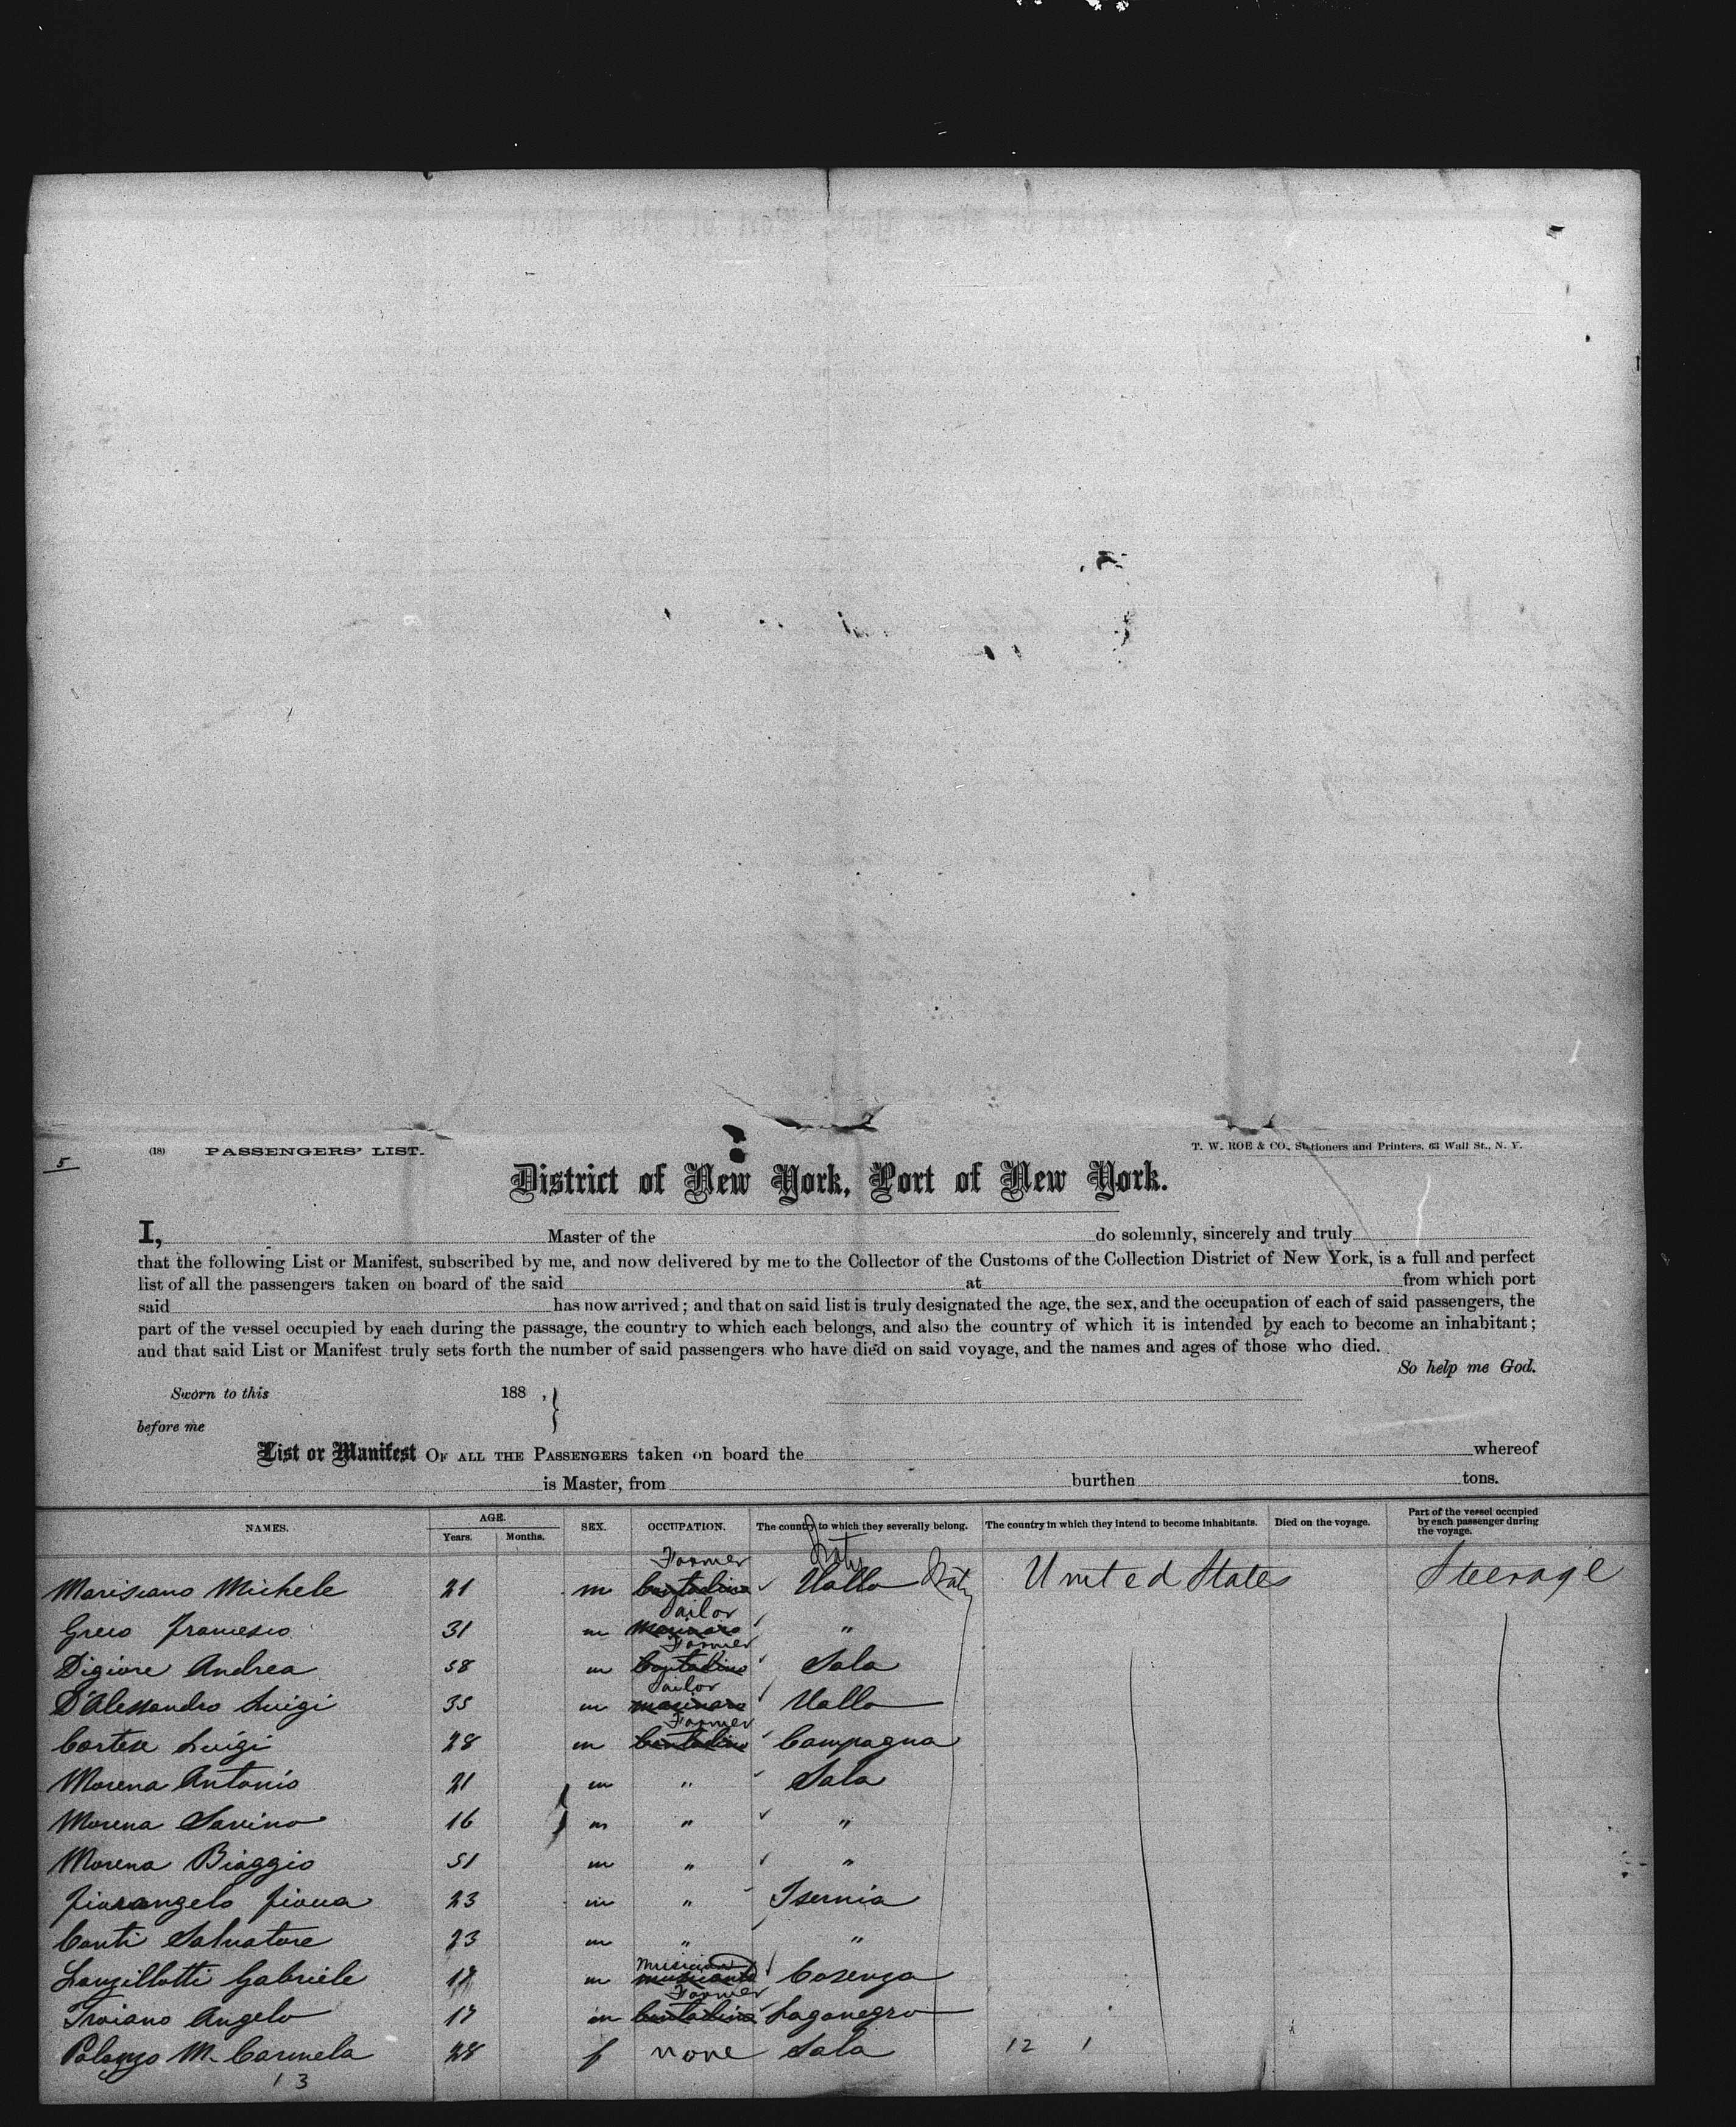 5
(18) PASSENGERS' LIST. T. W. ROE & CO., Stationers and Printers, 63 Wall St., N. Y.
District of New York, Port of New York.
I, Master of the do solemnly, sincerely and truly
that the following List or Manifest, subscribed by me, and now delivered by me to the Collector of the Customs of the Collection District of New York, is a full and perfect
list of all the passengers taken on board of the said at from which port
said has now arrived; and that on said list is truly designated the age, the sex, and the occupation of each of said passengers, the
part of the vessel occupied by each during the passage, the country to which each belongs, and also the country of which it is intended by each to become an inhabitant;
and that said List or Manifest truly sets forth the number of said passengers who have died on said voyage, and the names and ages of those who died.
So help me God.
Sworn to this 188 ,
before me
List or Manifest OF ALL THE PASSENGERS taken on board the whereof
is Master, from burthen tons.
NAMES. AGE. Years. Months. SEX. OCCUPATION. The country to which they severally belong. The country in which they intend to become inhabitants. Died on the voyage. Part of the vessel occupied by each passenger during the voyage.
Farmer Italy
Marisiano Michele 21 m Contadino Vallo Italy United States Steerage
Sailor
Greco Francesco 31 m marinaro "
Farmer
Digiore Andrea 58 m Contadino Sala
Sailor
D'Alessandro Luigi 35 m marinaro Vallo
Farmer
Cortese Luigi 28 m Contadino Campagna
Morena Antonio 21 m " Sala
Morena Savino 16 m " "
Morena Biaggio 51 m " "
Fiorangelo 23 m " Isernia
Conti Salvatore 23 m " "
Musician
Lanzillotti Gabriele m musicante Cosenza
Farmer
Troiano Angelo 17 m Contadino Lagonegro
Palazzo M. Carmela 28 f none Sala 12 1
13